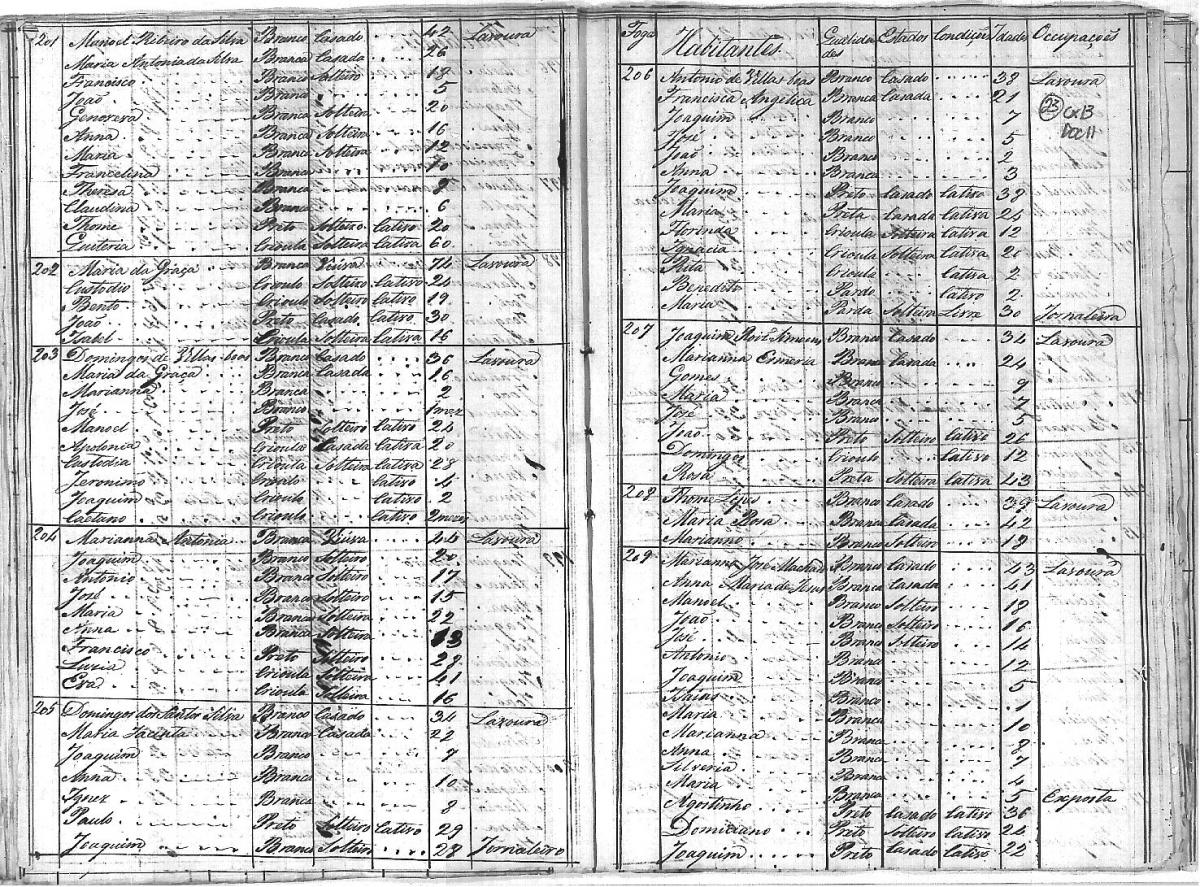 201 Manoel Ribeiro da Silva Branco Casado 42 Lavoura
Maria Antonia da Silva Branca Casada 26
Francisco Branco Solteiro 18
João Branco 5
Genoveva Branca Solteira 20
Anna Branca Solteira 16
Maria Branca Solteira 12
Francelina Branca 10
Theresa Branca
Claudina Branca 6
Thome Preto Solteiro Cativo 20
Crioula Solteira Cativa 60
202 Maria da Graça Branca Viuva 74 Lavoura
Custodio Crioulo Solteiro Cativo 24
Bento Crioulo Solteiro Cativo 19
João Preto Casado Cativo 30
Isabel Crioula Solteira Cativa 16
203 Domingos de Villas boas Branco Casado 36 Lavoura
Maria da Graça Branca Casada 16
Marianna Branca 2
José Branco 1 mez
Manoel Preto Solteiro Cativo 24
Apolonia Crioula Casada Cativa 20
Custodia Crioula Solteira Cativa 28
Jeronimo Crioulo Cativo 4
Joaquim Crioulo Cativo 2
Caetano Crioulo Cativo 2 mezes
204 Marianna Antonia Branca Viuva 44 Lavoura
Joaquim Branco Solteiro 20
Antonio Branco Solteiro 17
José Branco Solteiro 15
Maria Branca Solteira 22
Anna Branca Solteira 13
Francisco Preto Solteiro 29
Luzia Crioula Solteira 41
Eva Crioula Solteira 16
205 Domingos dos Santos Silva Branco Casado 34 Lavoura
Maria Jacinta Branca Casada 22
Joaquim Branco 7
Anna Branca 10
Ignez Branca 8
Paulo Preto Solteiro Cativo 29
Joaquim Branco Solteiro 28 Jornaleiro
Fogo Habitantes Qualidades Estados Condições Idades Occupações
206 Antonio de Villas boas Branco Casado 38 Lavoura
Francisca Angelica Branca Casada 21
Joaquim Branco 7
José Branco 5
João Branco 2
Anna Branca 3
Joaquim Preto Casado Cativo 38
Maria Preta Casada Cativa 24
Florinda Crioula Solteira Cativa 12
Ignacia Crioula Solteira Cativa 20
Rita Crioula Cativa 2
Benedito Pardo Cativo 2
Maria Parda Solteira Livre 30 Jornaleira
23 Cx 13
Doc 11
207 Joaquim Branco Casado 34 Lavoura
Marianna Branca Casada 24
Gomes Branco 9
Maria Branca 7
José Branco 5
João Preto Solteiro Cativo 26
Domingos Crioulo Cativo 12
Rosa Preta Solteira Cativa 43
208 Thome Lopes Branco Casado 39 Lavoura
Maria Rosa Branca Casada 42
Marianno Branco Solteiro 18
209 Marianno José Machado Branco Casado 43 Lavoura
Anna Maria de Jesus Branca Casada 41
Manoel Branco Solteiro 18
João Branco Solteiro 16
José Branco Solteiro 14
Antonio Branco 12
Joaquim Branco 5
Isaias Branco 1
Maria Branca 10
Marianna Branca 8
Anna Branca 7
Silveria Branca 4
Maria Branca 5 Exposta
Agostinho Preto Casado Cativo 36
Domiciano Preto Solteiro Cativo 24
Joaquim Preto Casado Cativo 22